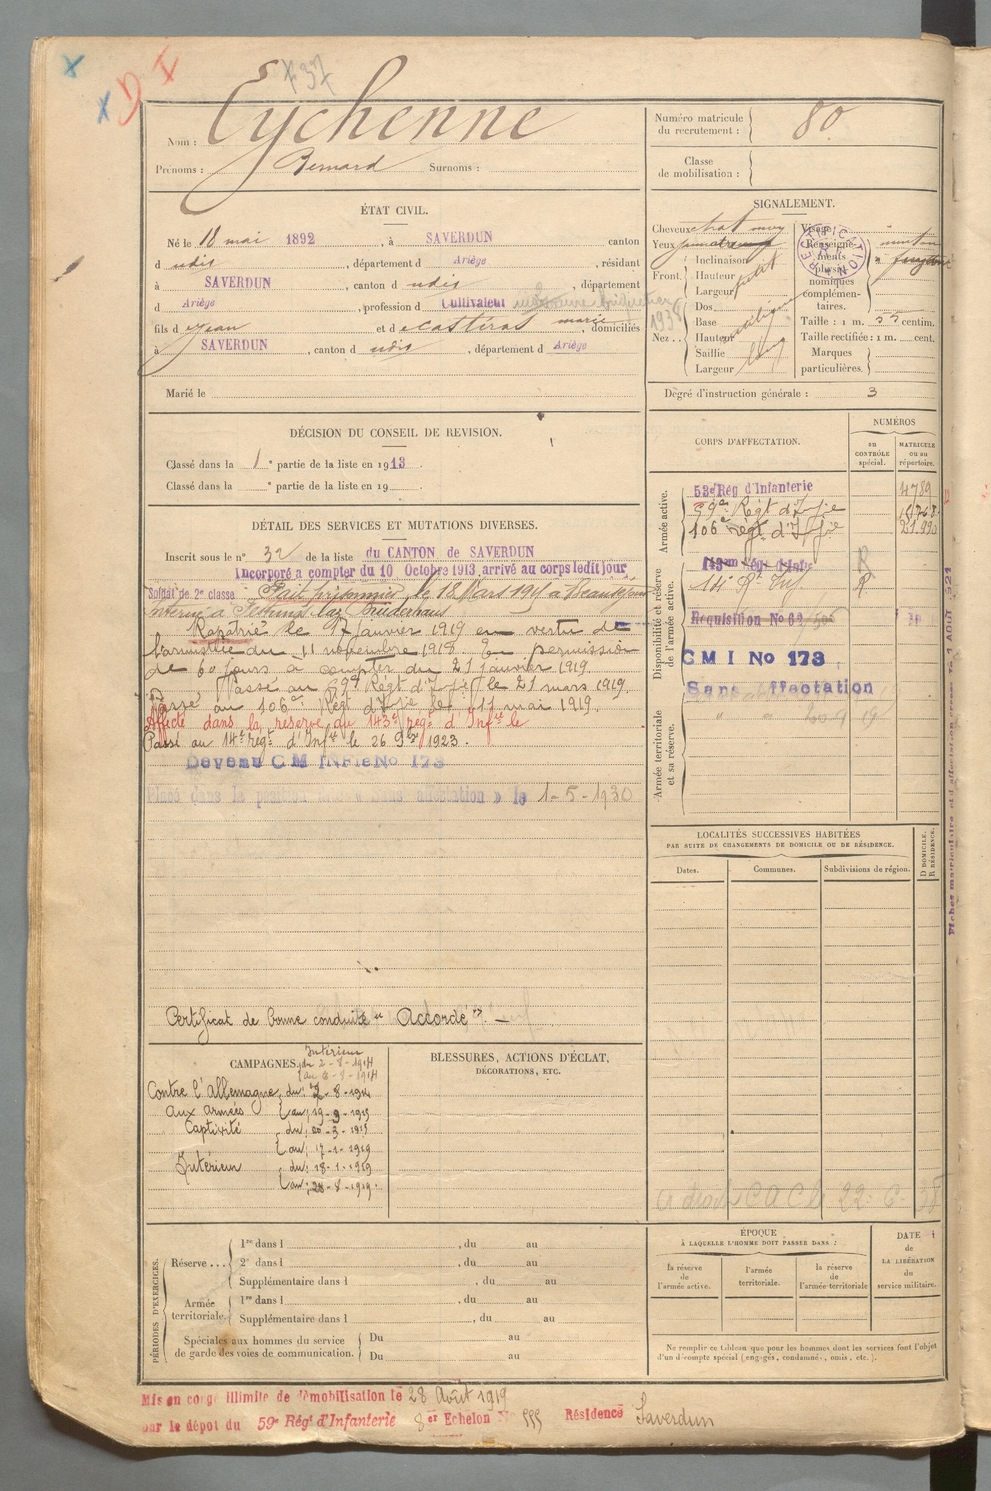 737
Nom : Eychenne
Prénoms : Bernard Surnoms :
ÉTAT CIVIL.
Né le 18 mai 1892, à SAVERDUN canton
d udis, département d Ariège, résidant
à SAVERDUN, canton d udis, département
d Ariège, profession d Cultivateur
1938
fils d Jean et d e Castéras marie, domiciliés
à SAVERDUN, canton d udis, département d Ariège
Marié le
DÉCISION DU CONSEIL DE REVISION.
Classé dans la 1e partie de la liste en 1913.
Classé dans la e partie de la liste en 19
DÉTAIL DES SERVICES ET MUTATIONS DIVERSES.
Inscrit sous le n° 32 de la liste du CANTON de SAVERDUN
Incorporé a compter du 10 Octobre 1913 arrivé au corps ledit jour
Soldat de 2e classe Fait prisonnier le 18 Mars 1915 à Beauséjour
interné à
Rapatrié le 17 Janvier 1919 en vertu de
l'armistice du 11 novembre 1918. En permission
de 60 jours a compter du 21 janvier 1919
Passé au 59e Régt d'Infie le 21 mars 1919.
Passé au 106e Régt d'Infie le 11 mai 1919.
Affecté dans la réserve au 143e reg. d'Infie le
Passé au 14e régt d'Infie le 26 9bre 1923.
Devenu C M INFie No 173
Placé dans la position dite « Sans affectation » le 1-5-1930
Certificat de bonne conduite "Accordé". —
CAMPAGNES.
Intérieur
du 2-8-1914
au 6-8-1914
Contre l'Allemagne du: 7-8-1914
aux armées au: 19-3-1915
Captivité du: 20-3-1915
au: 17-1-1919
Intérieur du: 18-1-1919
au: 28-8-1919.
BLESSURES, ACTIONS D'ÉCLAT,
DÉCORATIONS, ETC.
PÉRIODES D'EXERCICES.
Réserve... 1re dans l , du au
2e dans l , du au
Supplémentaire dans l , du au
Armée territoriale. 1re dans l , du au
Supplémentaire dans l , du au
Spéciales aux hommes du service
de garde des voies de communication. Du au
Du au
Mis en congé illimité de démobilisation le 28 Août 1919
par le dépot du 59e Régt d'Infanterie 8e Echelon No 555 Résidence Saverdun
Numéro matricule
du recrutement : 80
Classe
de mobilisation :
SIGNALEMENT.
Cheveux chat moy
Yeux
Front. Inclinaison
Hauteur petit
Largeur
Nez.. Dos
Base
Hauteur
Saillie
Largeur long
Visage
Renseigne-
ments
physio-
nomiques
complémen-
taires.
Taille : 1 m. 55 centim.
Taille rectifiée : 1 m. cent.
Marques
particulières.
Dégré d'instruction générale : 3
CORPS D'AFFECTATION.
NUMÉROS
au
CONTRÔLE
spécial.
MATRICULE
ou au
répertoire.
Armée active.
53e Rég d'Infanterie 4789
59e Régt d'Infie
106e Régt d'Infie 21.990
Disponibilité et réserve
de l'armée active.
143eme Rég. d'Infie R
14e Rt Inf R
Requisition No 63
C M I No 173
Sans affectation
Armée territoriale
et sa réserve.
LOCALITÉS SUCCESSIVES HABITÉES
PAR SUITE DE CHANGEMENTS DE DOMICILE OU DE RÉSIDENCE.
Dates.
Communes.
Subdivisions de région.
D DOMICILE.
R RÉSIDENCE.
a droit C A C le 22-6-38
ÉPOQUE
À LAQUELLE L'HOMME DOIT PASSER DANS :
la réserve
de
l'armée active.
l'armée
territoriale.
la réserve
de
l'armée territoriale
DATE
de
LA LIBÉRATION
du
service militaire.
Ne remplir ce tableau que pour les hommes dont les services font l'objet
d'un décompte spécial (engagés, condamnés, omis, etc.).